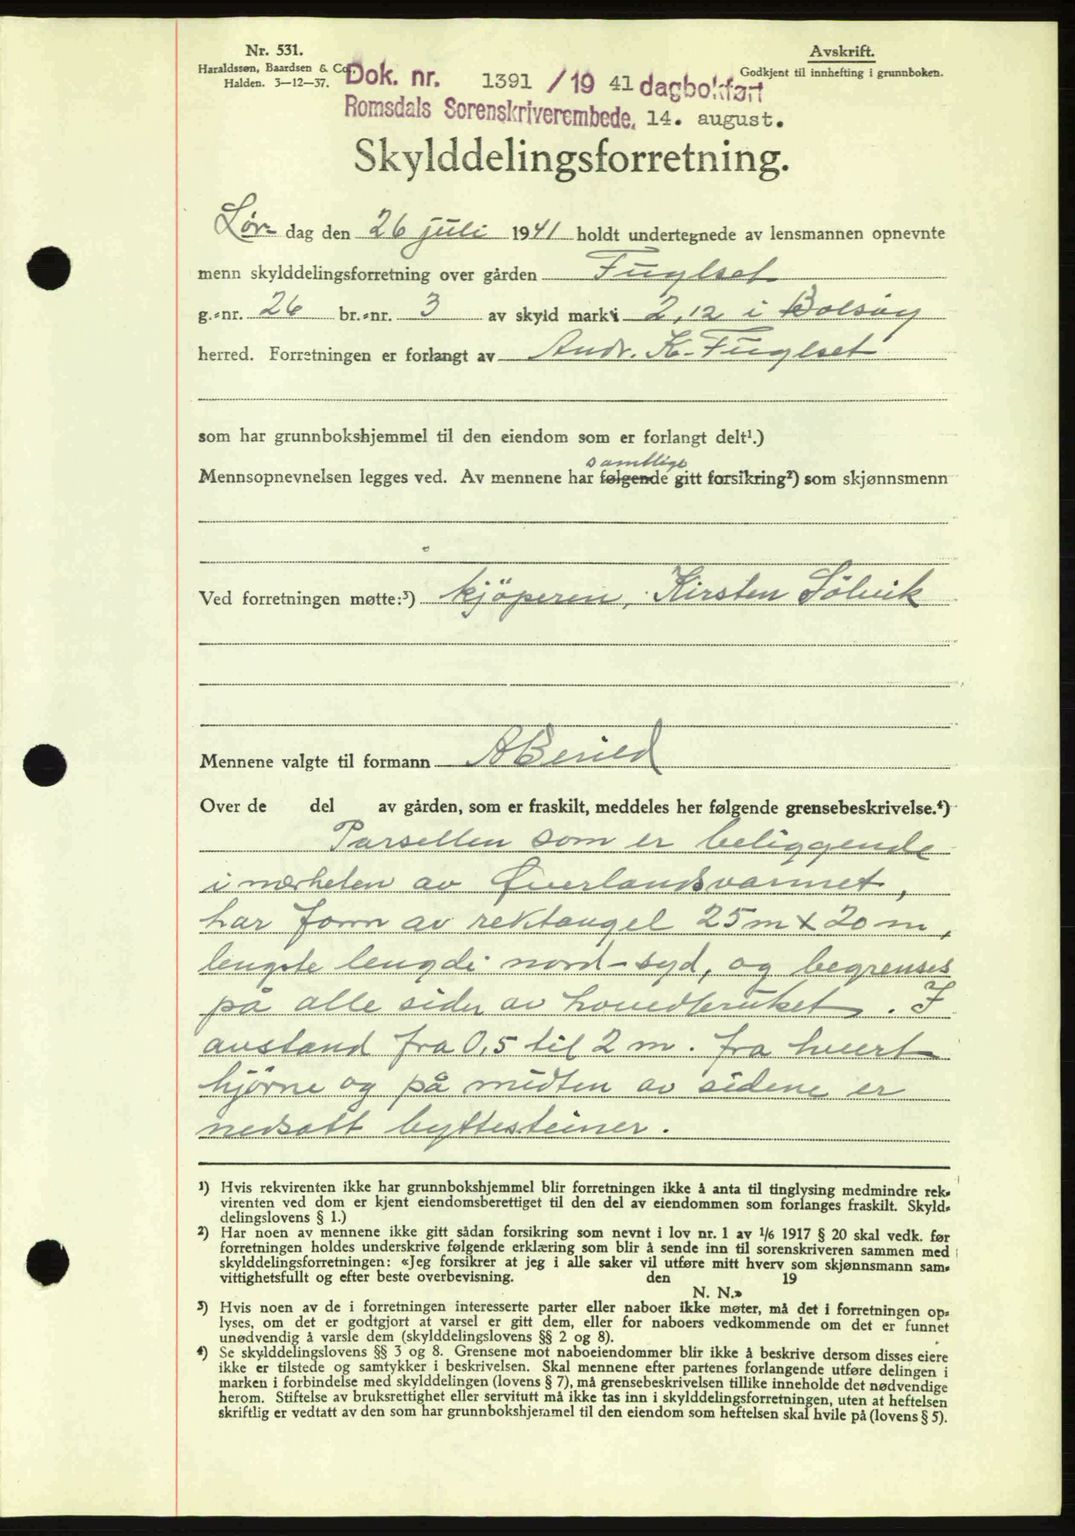 Nr. 531.
Haraldssøn, Baardsen & Co.
Halden. 3—12—37.
Avskrift.
Godkjent til innhefting i grunnboken.
Dok. nr. 1391 /19 41 dagbokført
Romsdals Sorenskriverembede, 14. august.
Skylddelingsforretning.
Lør- dag den 26 juli 1941 holdt undertegnede av lensmannen opnevnte
menn skylddelingsforretning over gården Fuglset
g.-nr. 26 br.-nr. 3 av skyld mark 2,12 i Bolsøy
herred. Forretningen er forlangt av Andr. K. Fuglset
som har grunnbokshjemmel til den eiendom som er forlangt delt¹.)
samtlige
Mennsopnevnelsen legges ved. Av mennene har følgende gitt forsikring²) som skjønnsmenn
Ved forretningen møtte:³) kjöperen, Kirsten Sölvik
Mennene valgte til formann
Over de del av gården, som er fraskilt, meddeles her følgende grensebeskrivelse.⁴)
Parsellen som er beliggende
i nærheten av Øverlandsvannet,
har form av rektangel 25 m x 20 m,
lengste lengde nord-syd, og begrenses
på alle sider av hovedbruket. I
avstand fra 0,5 til 2 m. fra hvert
hjørne og på midten av sidene er
nedsatt byttesteiner.
¹) Hvis rekvirenten ikke har grunnbokshjemmel blir forretningen ikke å anta til tinglysing medmindre rek-
virenten ved dom er kjent eiendomsberettiget til den del av eiendommen som forlanges fraskilt. Skyld-
delingslovens § 1.)
²) Har noen av mennene ikke gitt sådan forsikring som nevnt i lov nr. 1 av 1/6 1917 § 20 skal vedk. før
forretningen holdes underskrive følgende erklæring som blir å sende inn til sorenskriveren sammen med
skylddelingsforretningen: «Jeg forsikrer at jeg i alle saker vil utføre mitt hverv som skjønnsmann sam-
vittighetsfullt og efter beste overbevisning. den 19
N. N.»
³) Hvis noen av de i forretningen interesserte parter eller naboer ikke møter, må det i forretningen op-
lyses, om det er godtgjort at varsel er gitt dem, eller for naboers vedkommende om det er funnet
unødvendig å varsle dem (skylddelingslovens §§ 2 og 8).
⁴) Se skylddelingslovens §§ 3 og 8. Grensene mot naboeiendommer blir ikke å beskrive dersom disses eiere
ikke er tilstede og samtykker i beskrivelsen. Skal mennene efter partenes forlangende utføre delingen i
marken i forbindelse med skylddelingen (lovens § 7), må grensebeskrivelsen tillike inneholde det nødvendige
herom. Stiftelse av bruksrettighet eller servitutt må ikke tas inn i skylddelingsforretningen, uten at heftelsen
skriftlig er vedtatt av den som har grunnbokshjemmel til den eiendom som heftelsen skal hvile på (lovens § 5).